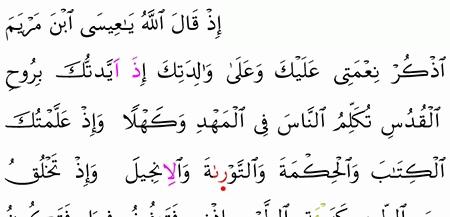 إِذْ قَالَ ٱللَّهُ يَٰعِيسَى ٱبْنَ مَرْيَمَ
ٱذْكُرْ نِعْمَتِى عَلَيْكَ وَعَلَىٰ وَٰلِدَتِكَ إِذَ اَيَّدتُّكَ بِرُوحِ
ٱلْقُدُسِ تُكَلِّمُ ٱلنَّاسَ فِى ٱلْمَهْدِ وَكَهْلًا وَإِذْ عَلَّمْتُكَ
ٱلْكِتَٰبَ وَٱلْحِكْمَةَ وَٱلتَّوْرَىٰةَ وَٱلِانجِيلَ وَإِذْ تَخْلُقُ